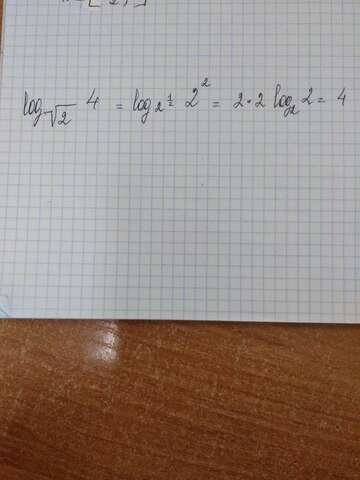 log_{√2} 4 = log_{2^{1/2}} 2^2 = 2·2 log_2 2 = 4